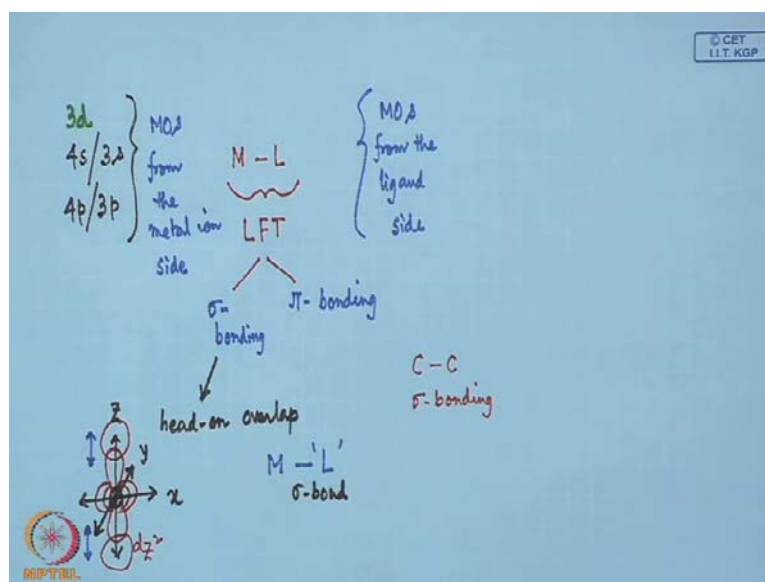 © CET
I.I.T. KGP
3d
4s/3s
4p/3p
MOs
from
the
metal ion
side
M – L
LFT
MOs
from the
ligand
side
σ-
bonding
π-bonding
C – C
σ-bonding
head-on overlap
M – 'L'
σ-bond
Z
y
x
dz²
NPTEL